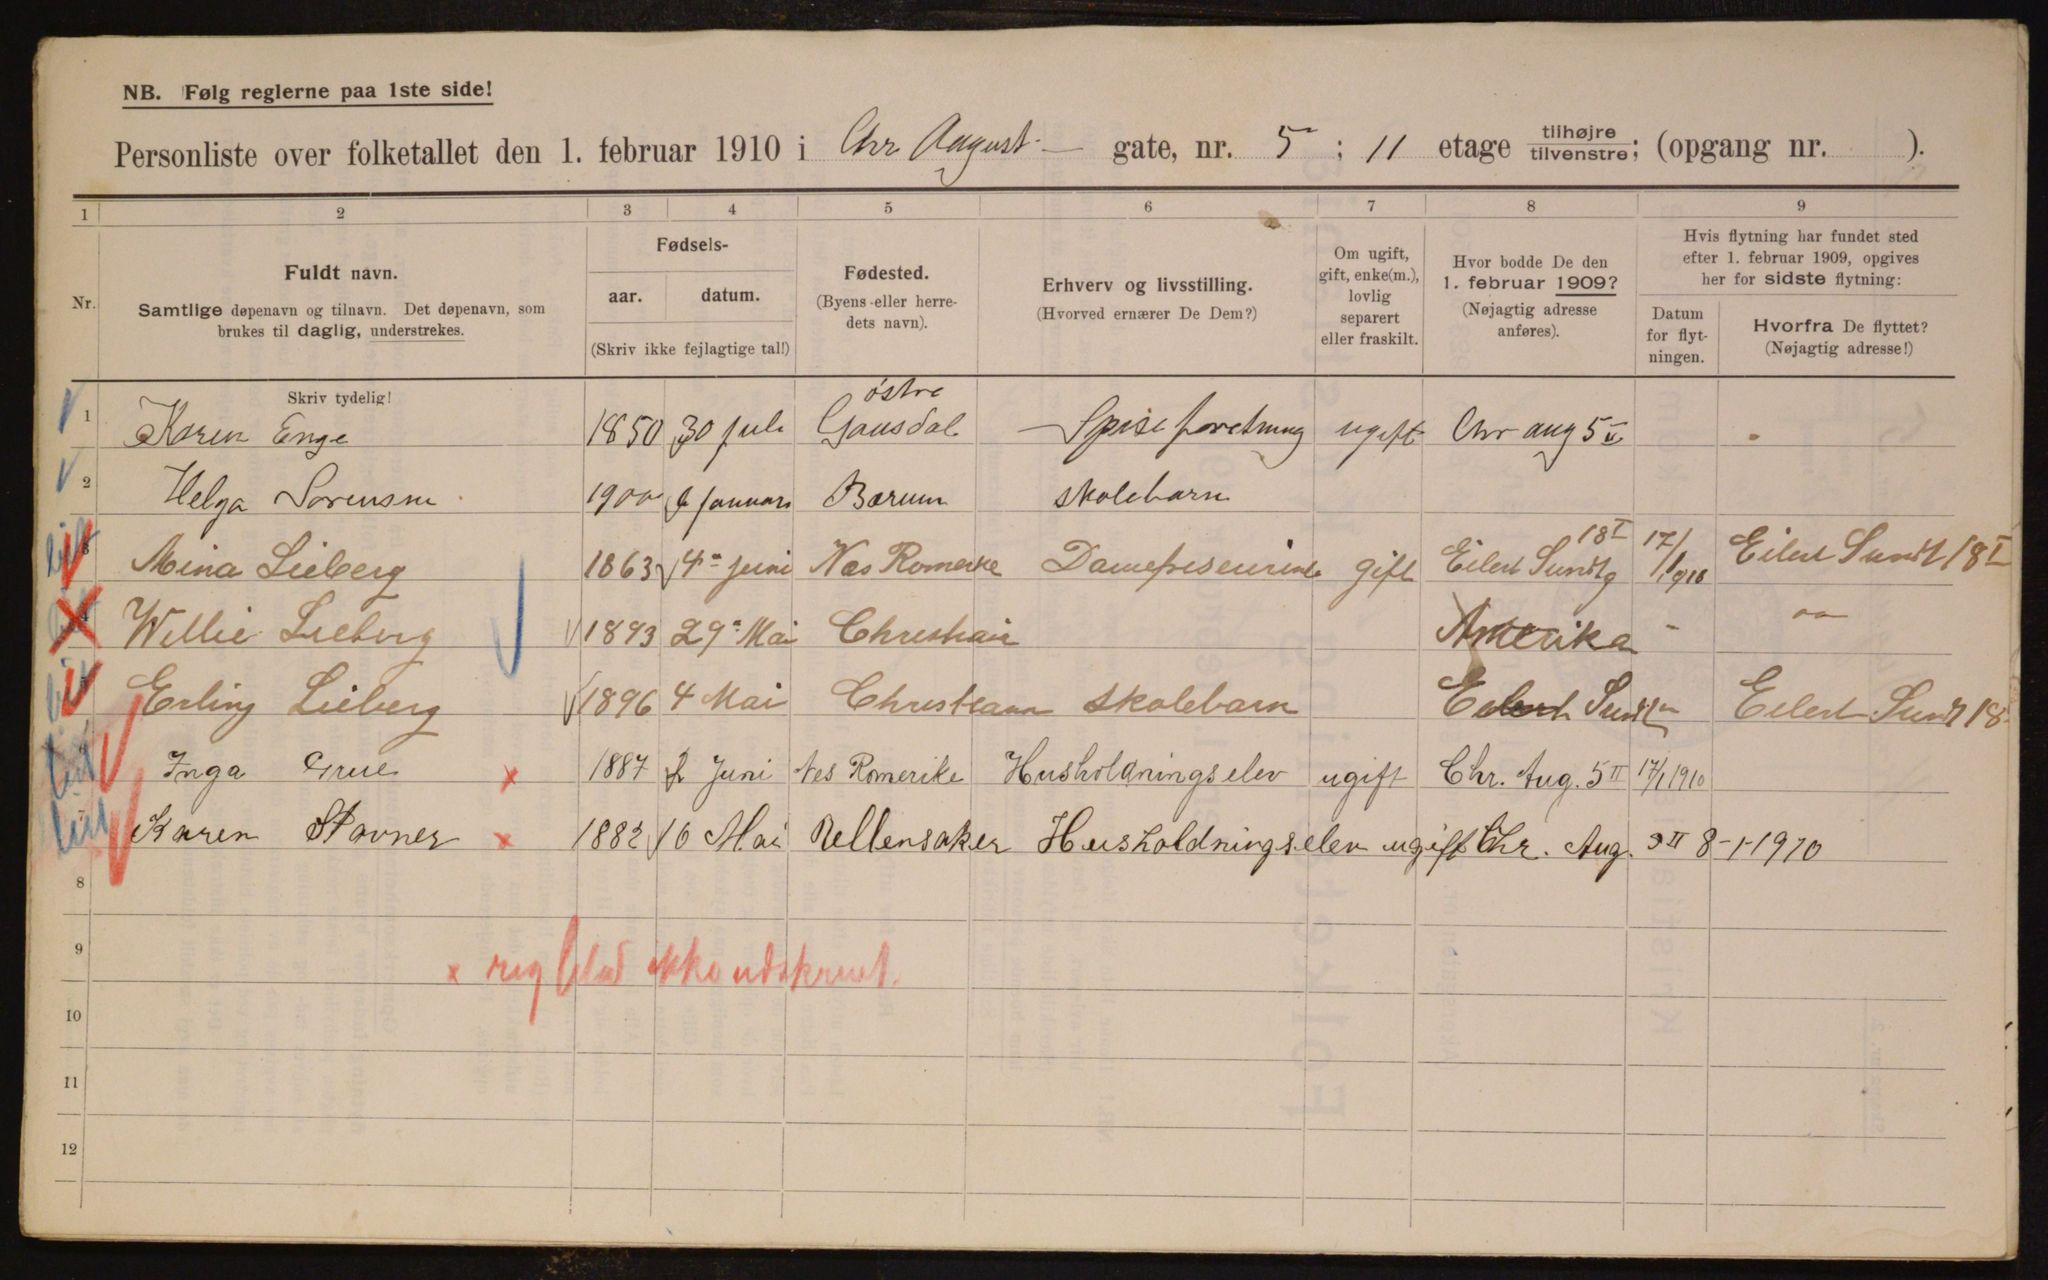 NB. Følg reglerne paa 1ste side!
Personliste over folketallet den 1. februar 1910 i Chr August gate, nr. 5 ; 11 etage tilhøjre tilvenstre; (opgang nr. ).
1 2 3 4 5 6 7 8 9
Nr.
Fuldt navn.
Samtlige døpenavn og tilnavn. Det døpenavn, som
brukes til daglig, understrekes.
Fødsels-
aar. datum.
(Skriv ikke fejlagtige tal!)
Fødested.
(Byens eller herre-
dets navn).
Erhverv og livsstilling.
(Hvorved ernærer De Dem?)
Om ugift,
gift, enke(m.),
lovlig
separert
eller fraskilt.
Hvor bodde De den
1. februar 1909?
(Nøjagtig adresse
anføres).
Hvis flytning har fundet sted
efter 1. februar 1909, opgives
her for sidste flytning:
Datum
for flyt-
ningen.
Hvorfra De flyttet?
(Nøjagtig adresse!)
Skriv tydelig!
1 Karen Enge 1850 30 juli østre Gausdal Spiseforetning ugift Chr aug 5 II
2 Helga Sorensen 1900 6 januari Bærum skolebarn
3 Mina Lieberg 1863 4 Juni Nes Romerike gift Eilert Sundtg 18 I 17/1 1910 Eilert Sundt 18 I
4 Willie Lieberg 1893 29 Mai Christiania Amerika -
5 Erling Lieberg 1896 4 Mai Christiania skolebarn Eilert Sundt Eilert Sundt 18
6 Inga Grue x 1887 2 Juni Nes Romerike Husholdningselev ugift Chr. Aug. 5 II 17/1 1910
7 Karen Stavner x 1882 10 Mai Ullensaker Husholdningselev ugift Chr. Aug. 5 II 8-1-1910
8
9
x reg blad ikke udskrevet.
10
11
12